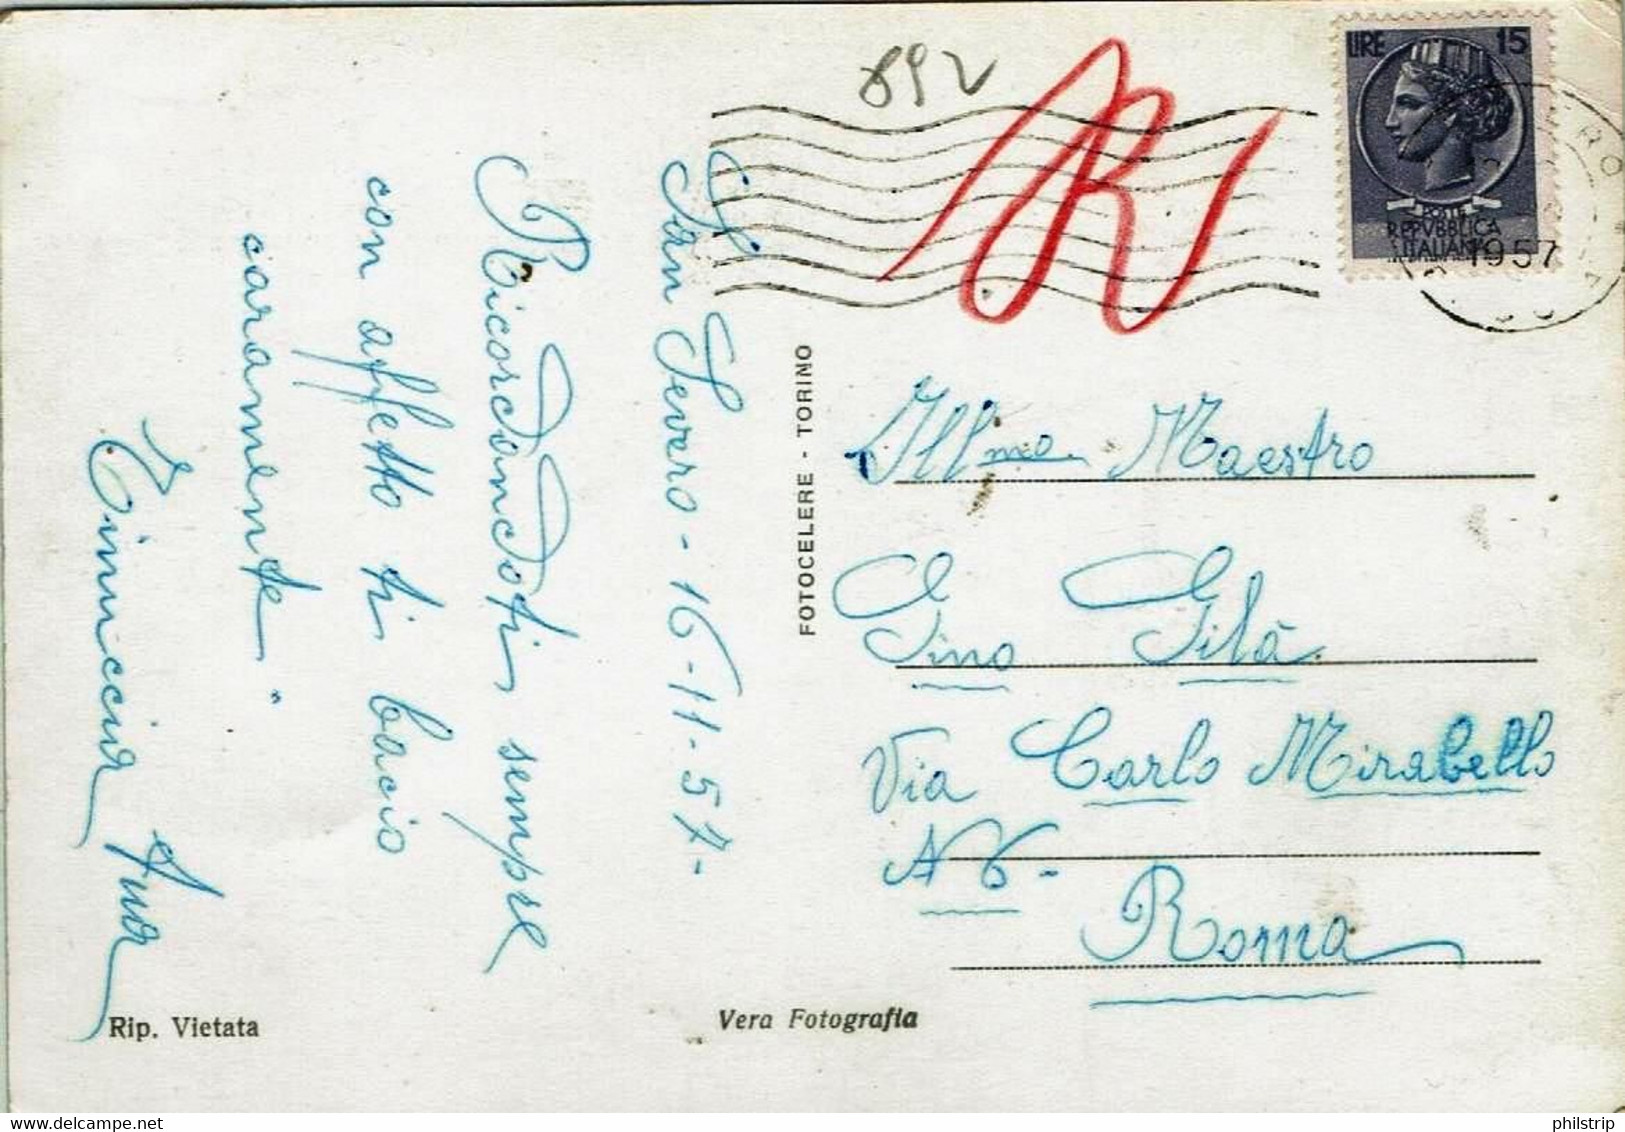 San Severo - 16-11-57-
Ricordandoti sempre
con affetto ti bacio
caramente.
Tua
Rip. Vietata
Vera Fotografia
FOTOCELERE - TORINO
892
LIRE 15
POSTE
REPVBBLICA
ITALIANA
1957
Ill.mo Maestro
Gino Filà
Via Carlo Mirabello
N 6 -
Roma
delcampe.net
philstrip